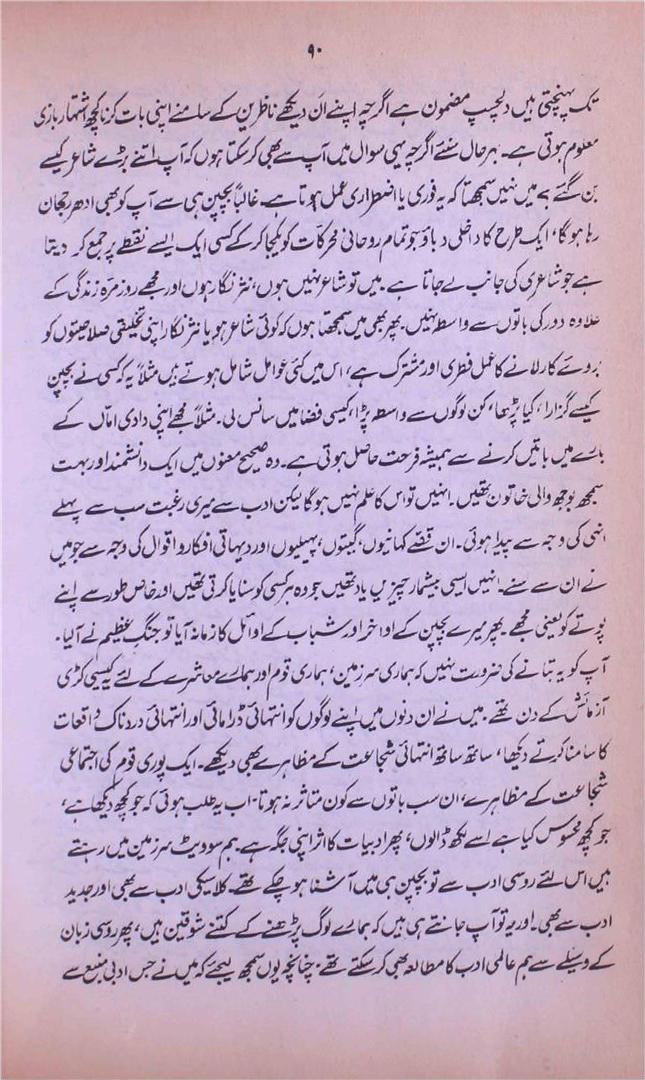 ۹۰
تک پہنچتی ہیں دلچسپ مضمون ہے اگرچہ اپنے اَن دیکھے ناظرین کے سامنے اپنی بات کرنا کچھ اشتہار بازی
معلوم ہوتی ہے۔ بہر حال سنئے اگرچہ یہی سوال میں آپ سے بھی کر سکتا ہوں کہ آپ اتنے بڑے شاعر کیسے
بن گئے؟ میں نہیں سمجھتا کہ یہ فوری یا اضطراری عمل ہوتا ہے۔ غالباً بچپن ہی سے آپ کو بھی ادھر رجحان
رہا ہوگا، ایک طرح کا داخلی دباؤ جو تمام روحانی محرکات کو یکجا کرکے کسی ایک ایسے نقطے پر جمع کر دیتا
ہے جو شاعری کی جانب لے جاتا ہے۔ میں تو شاعر نہیں ہوں، نثر نگار ہوں اور مجھے روز مرّہ زندگی کے
علاوہ دور کی باتوں سے واسطہ نہیں۔ پھر بھی میں سمجھتا ہوں کہ کوئی شاعر ہو یا نثر نگار اپنی تخلیقی صلاحیتوں کو
بروئے کار لانے کا عمل فطری اور مشترک ہے، اس میں کئی عوامل شامل ہوتے ہیں مثلاً یہ کہ کسی نے بچپن
کیسے گزارا، کیا پڑھا، کن لوگوں سے واسطہ پڑا، کیسی فضا میں سانس لی۔ مثلاً مجھے اپنی دادی امّاں کے
بارے میں باتیں کرنے سے ہمیشہ فرحت حاصل ہوتی ہے۔ وہ صحیح معنوں میں ایک دانشمند اور بہت
سمجھ بوجھ والی خاتون تھیں۔ انہیں تو اس کا علم نہیں ہوگا لیکن ادب سے میری رغبت سب سے پہلے
انہی کی وجہ سے پیدا ہوئی۔ ان قصّے کہانیوں، گیتوں، پہیلیوں اور دیہاتی افکار و اقوال کی وجہ سے جو میں
نے ان سے سنے۔ انہیں ایسی بیشمار چیزیں یاد تھیں جو وہ ہر کسی کو سنایا کرتی تھیں اور خاص طور سے اپنے
پوتے کو یعنی مجھے۔ پھر میرے بچپن کے اواخر اور شباب کے اوائل کا زمانہ آیا تو جنگِ عظیم نے آلیا۔
آپ کو یہ بتانے کی ضرورت نہیں کہ ہماری سرزمین، ہماری قوم اور ہمارے معاشرے کے لئے یہ کیسی کڑی
آزمائش کے دن تھے۔ میں نے ان دنوں میں اپنے لوگوں کو انتہائی ڈرامائی اور انتہائی دردناک واقعات
کا سامنا کرتے دیکھا، ساتھ ساتھ انتہائی شجاعت کے مظاہرے بھی دیکھے۔ ایک پوری قوم کی اجتماعی
شجاعت کے مظاہرے، ان سب باتوں سے کون متاثر نہ ہوتا۔ اب یہ طلب ہوئی کہ جو کچھ دیکھا ہے،
جو کچھ محسوس کیا ہے اسے لکھ ڈالوں، پھر ادبیات کا اثر اپنی جگہ ہے۔ ہم سوویٹ سرزمین میں رہتے
ہیں اس لئے روسی ادب سے تو بچپن ہی میں آشنا ہو چکے تھے۔ کلاسیکی ادب سے بھی اور جدید
ادب سے بھی۔ اور یہ تو آپ جانتے ہی ہیں کہ ہمارے لوگ پڑھنے کے کتنے شوقین ہیں، پھر روسی زبان
کے وسیلے سے ہم عالمی ادب کا مطالعہ بھی کر سکتے تھے۔ چنانچہ یوں سمجھ لیجئے کہ میں نے جس ادبی منبع سے